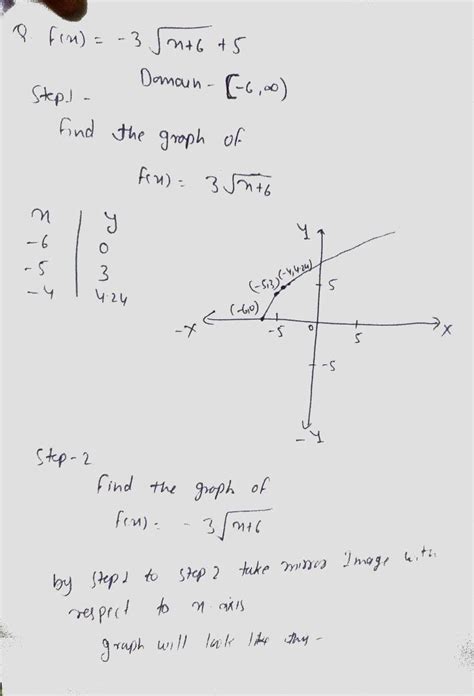 Q. f(x) = -3 √x+6 + 5
Domain - [-6, ∞)
Step 1 -
find the graph of
f(x) = 3√x+6
x | y
-6 | 0
-5 | 3
-4 | 4.24
y
(-5,3) (-4,4.24)
5
(-6,0)
-x -5 0 5 x
-5
-y
Step-2
find the graph of
f(x) = -3√x+6
by step 1 to step 2 take mirror Image with
respect to x-axis
graph will look like this -